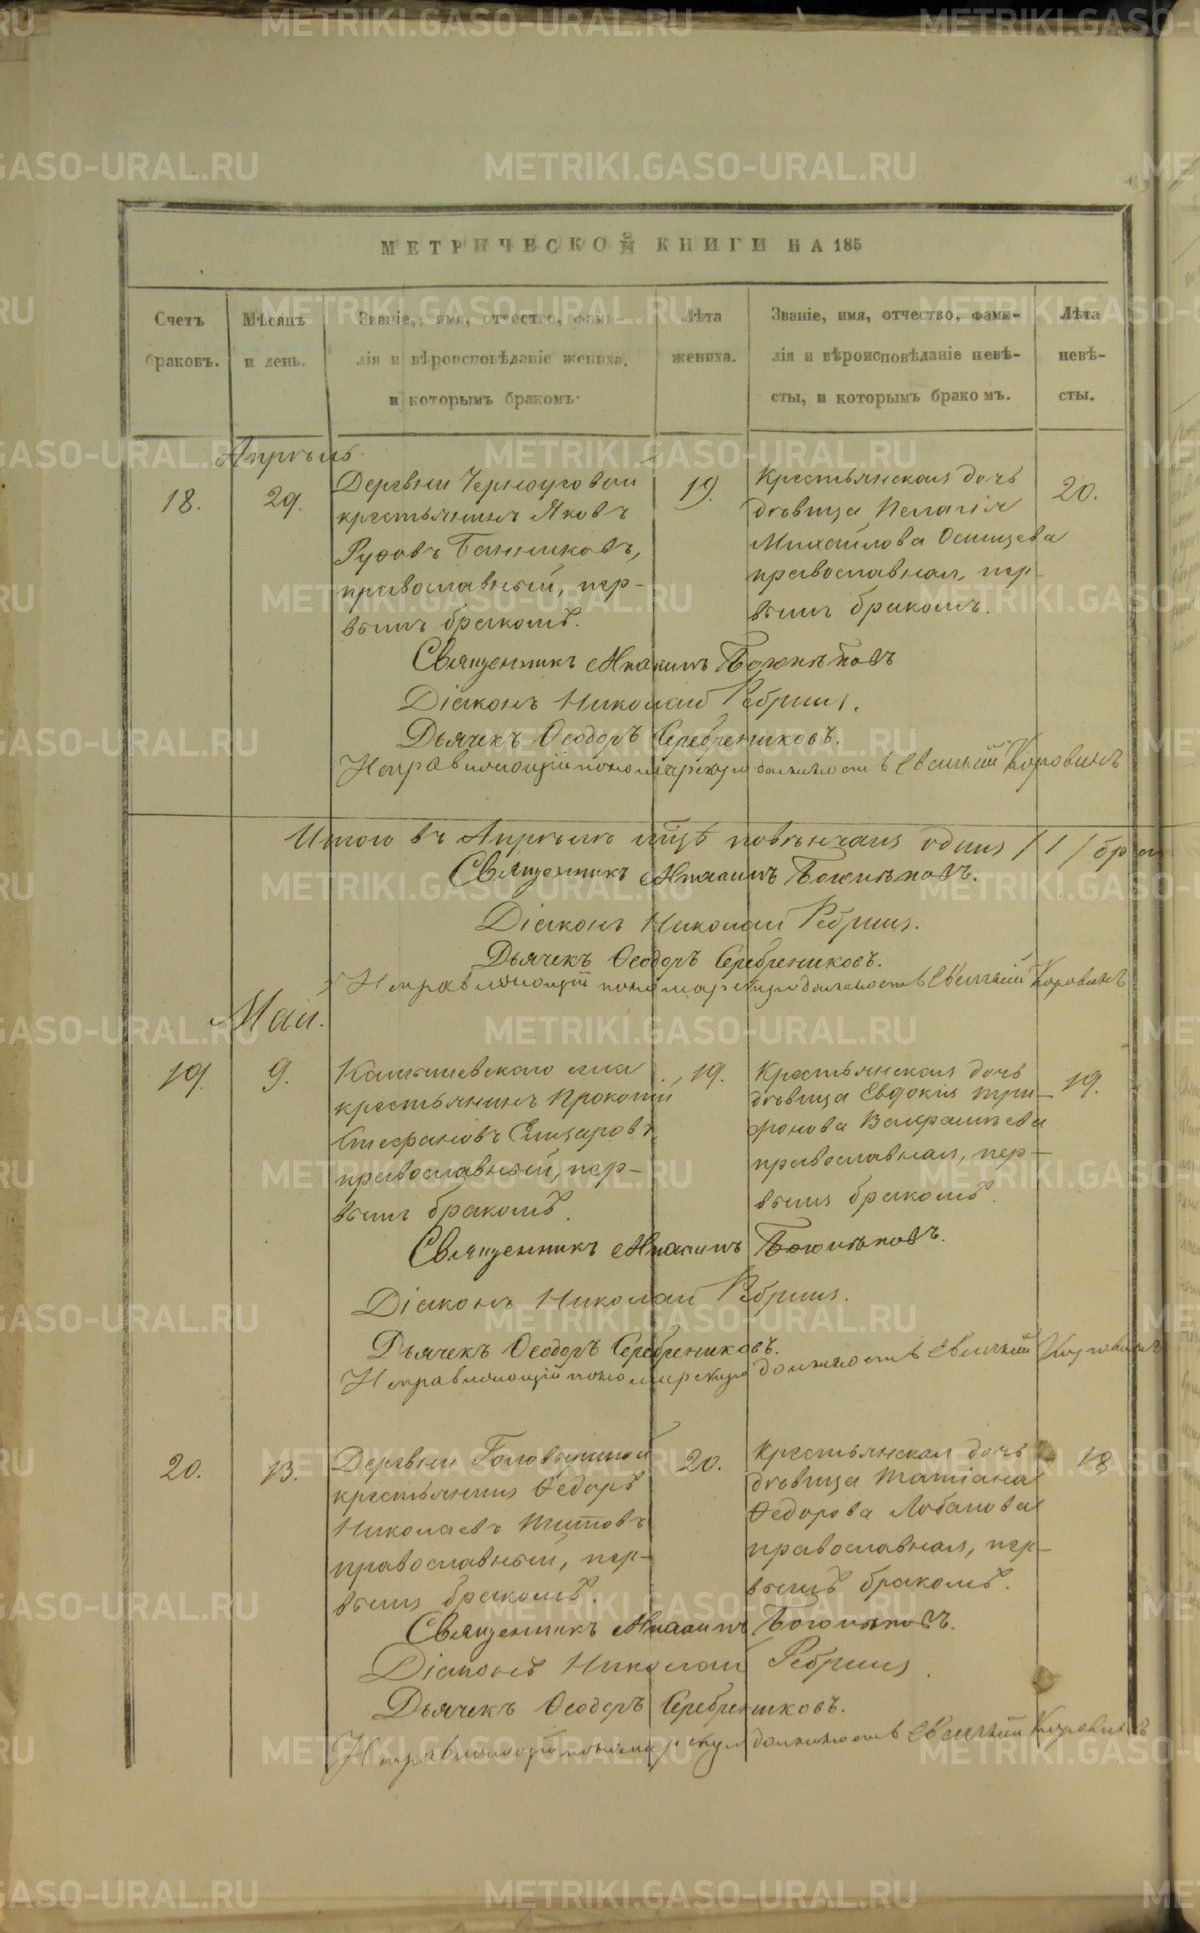 МЕТРИЧЕСКОЙ КНИГИ НА 185
Счетъ браковъ.
Мѣсяцъ и день.
Званіе, имя, отчество, фами-
лія и вѣроисповѣданіе жениха,
и которымъ бракомъ.
Лѣта жениха.
Званіе, имя, отчество, фами-
лія и вѣроисповѣданіе невѣ-
сты, и которымъ бракомъ.
Лѣта невѣ-
сты.
Апрѣль.
18.
29.
Деревни Черноусовой
крестьянинъ Яковъ
Руфовъ Банниковъ,
православный, пер-
вымъ бракомъ.
19.
Крестьянская дочь
дѣвица Пелагія
Михайлова Осинцева
православная, пер-
вымъ бракомъ.
20.
Священникъ
Діаконъ Николай Ребринъ.
Дьячекъ Ѳеодоръ Серебрениковъ.
Исправляющій пономарскую должность Евсигній Коровинъ
Итого въ Апрѣлѣ мцѣ повѣнчанъ одинъ /1/ бра
Священникъ
Діаконъ Николай Ребринъ.
Дьячекъ Ѳеодоръ Серебрениковъ.
Исправляющій пономарскую должность Евсигній Коровинъ
Май.
19.
9.
Камышевскаго села
крестьянинъ Прокопій
Стефановъ Елизаровъ
православный, пер-
вымъ бракомъ.
19.
Крестьянская дочь
дѣвица Евдокія Три-
фонова
православная, пер-
вымъ бракомъ.
19.
Священникъ
Діаконъ Николай Ребринъ.
Дьячекъ Ѳеодоръ Серебрениковъ.
Исправляющій пономарскую должность Евсигній Коровинъ
20.
13.
Деревни Головыриной
крестьянинъ Ѳедоръ
Николаевъ Титовъ
православный, пер-
вымъ бракомъ.
20.
Крестьянская дочь
дѣвица Татіана
Ѳедорова Лобанова
православная, пер-
вымъ бракомъ.
18
Священникъ
Діаконъ Николай Ребринъ.
Дьячекъ Ѳеодоръ Серебрениковъ.
Исправляющій пономарскую должность Евсигній Коровинъ
METRIKI.GASO-URAL.RU